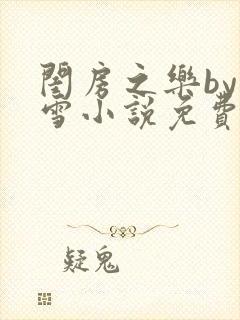 閨房之樂by
雪小說免費
疑鬼